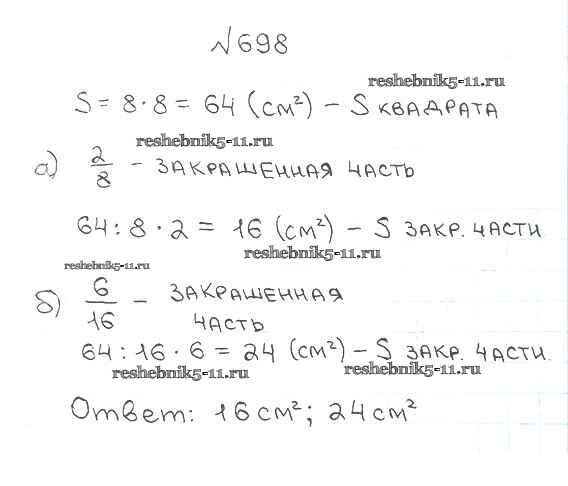 №698
reshebnik5-11.ru
S = 8 · 8 = 64 (см²) – S КВАДРАТА
reshebnik5-11.ru
а) 2/8 – ЗАКРАШЕННАЯ ЧАСТЬ
64 : 8 · 2 = 16 (см²) – S ЗАКР. ЧАСТИ
reshebnik5-11.ru
reshebnik5-11.ru
б) 6/16 – ЗАКРАШЕННАЯ
ЧАСТЬ
64 : 16 · 6 = 24 (см²) – S ЗАКР. ЧАСТИ.
reshebnik5-11.ru
reshebnik5-11.ru
Ответ: 16 см²; 24 см²